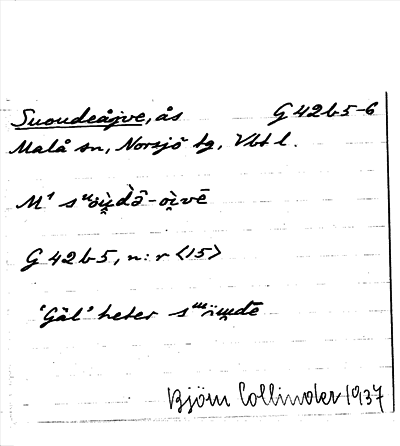 Suoudeåjve, ås G 42 b 5-6
Malå sn, Norsjö tg, Vbt l.
M¹
G 42 b 5, n:r <15>
'Gäl' heter
Björn Collinder 1937